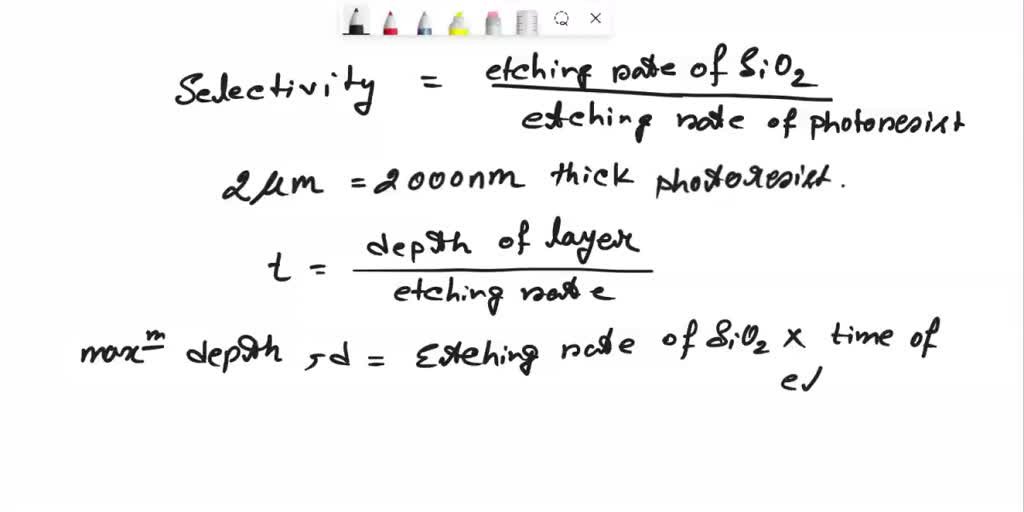 Selectivity = etching rate of SiO2 / etching rate of photoresist
2 μm = 2000nm thick photoresist.
t = depth of layer / etching rate
max^m depth, d = Etching rate of SiO2 × time of